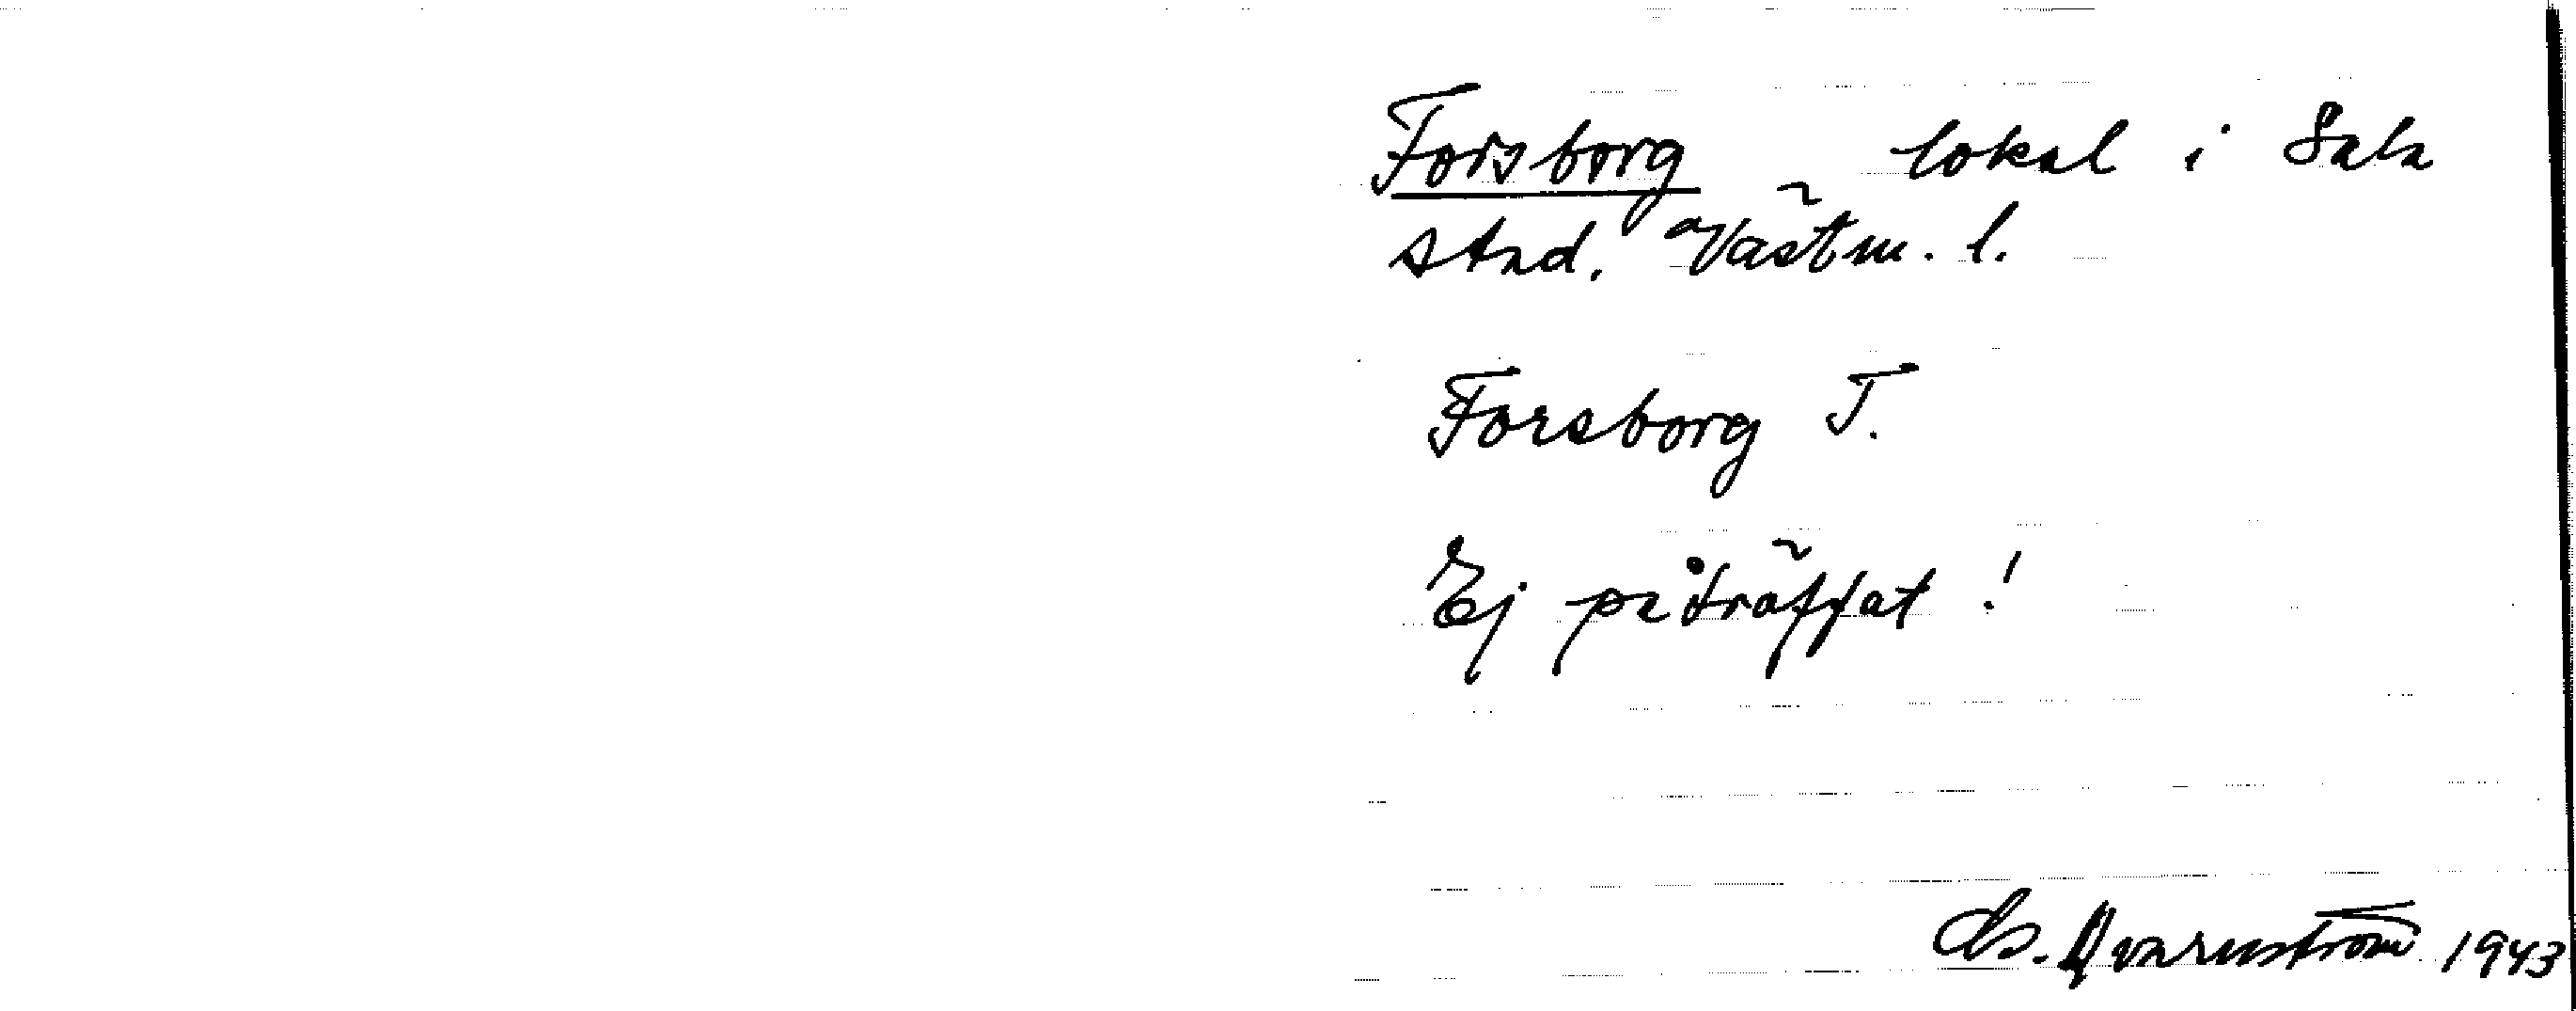 Forsborg lokal i Sala
stad. Västm. l.
Forsborg T.
Ej påträffat!
Qvarnström 1943